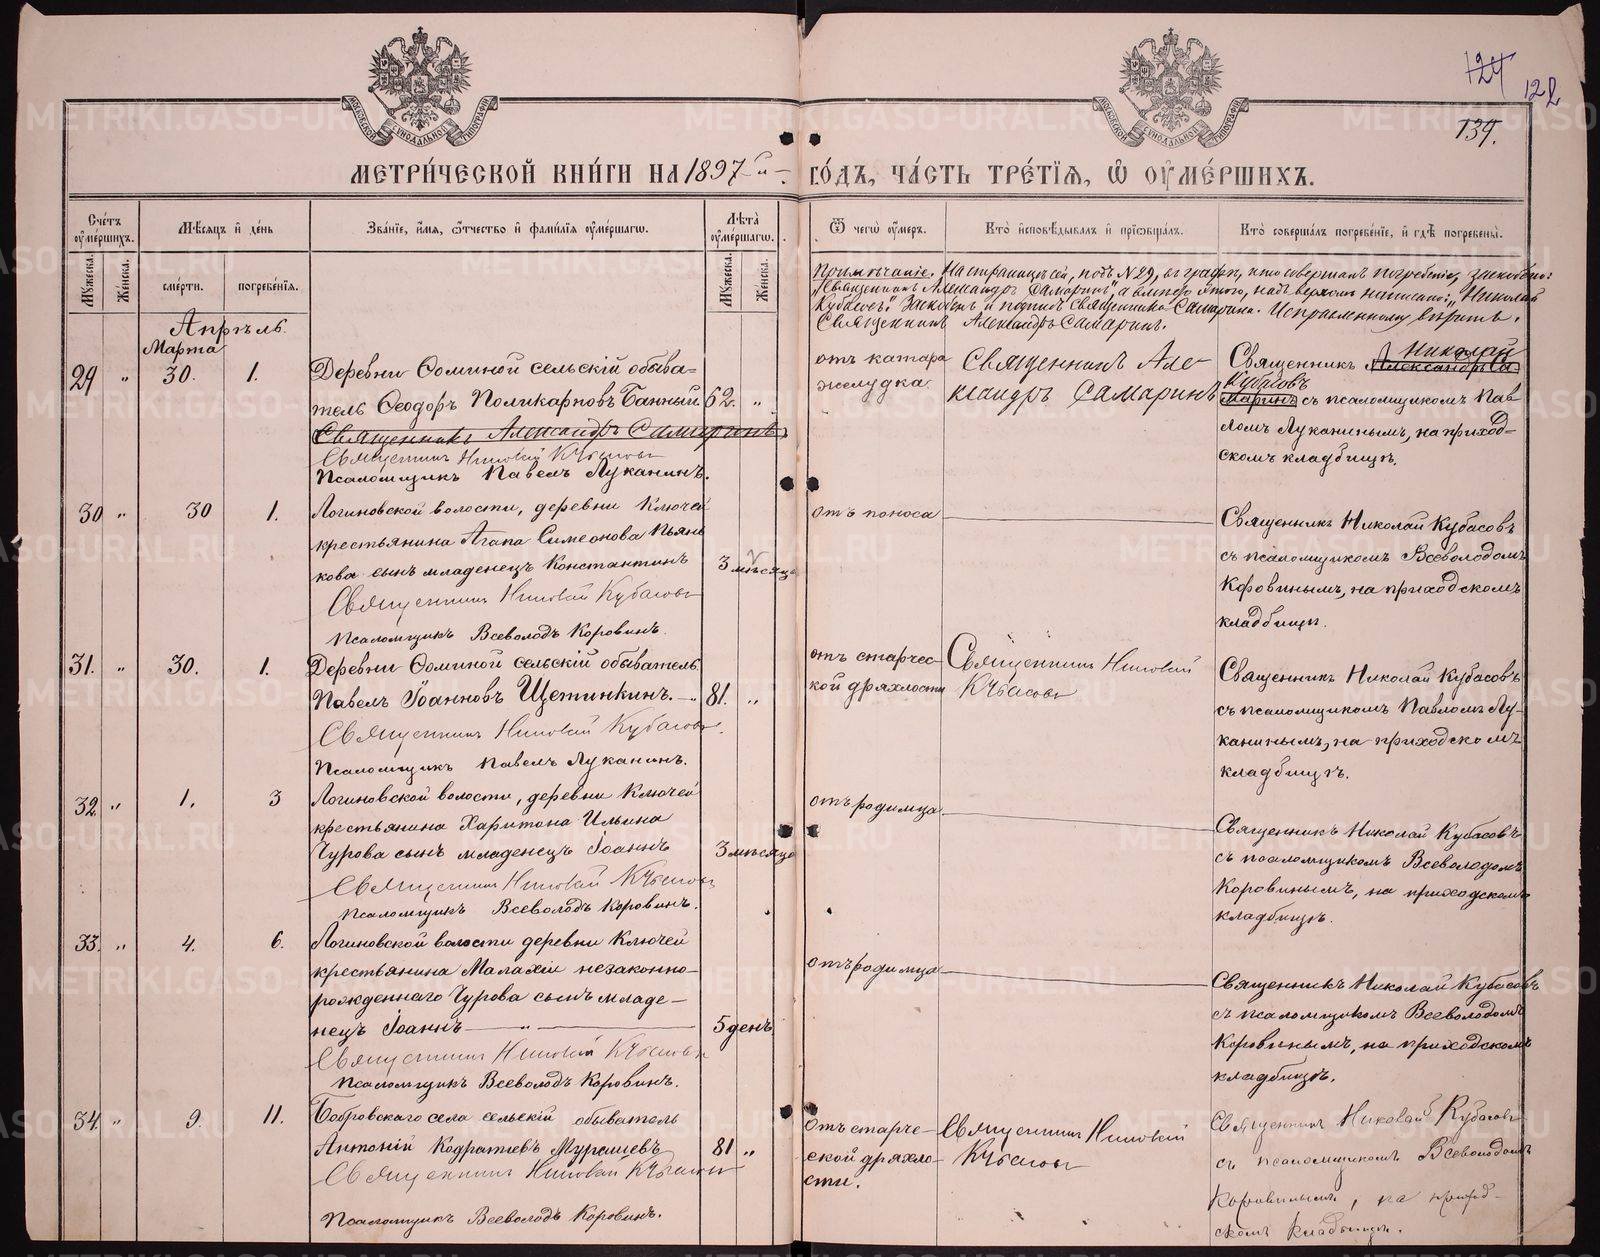 124
122
134.
МЕТРИ́ЧЕСКОЙ КНИ́ГИ НА 1897й ГО́ДЪ, ЧА́СТЬ ТРЕ́ТІѦ, Ѡ ОУМЕ́РШИХЪ.
Сче́тъ оумершихъ.
Мѣсѧцъ и де́нь
Зва́ніе, и́мѧ, ѻ́тчество и фами́ліѧ оуме́ршагѡ.
Лѣта̀ оуме́ршагѡ.
Ѿ чегѡ̀ оу́меръ.
Кто̀ исповѣ́дывалъ и пріѡбща́лъ.
Кто̀ соверша́лъ погребе́ніе, и гдѣ̀ погребены̀.
Мꙋ́жеска.
Же́нска.
сме́рти.
погребе́нїѧ.
Мꙋ́жеска.
Же́нска.
Примѣчаніе. На страницѣ сей, подъ №29, въ графѣ, кто совершалъ погребеніе, заскоблено:
"Священникъ Александръ Самаринъ" а вмѣсто этого, надъ верхомъ написано: "Николай
Кубасовъ". Заскобленъ и подпись священника Самарина. Исправленному вѣрить.
Священникъ Александръ Самаринъ.
Апрѣль.
Марта
29 " 30. 1.
Деревни Ѳоминой сельскій обыва-
тель Ѳеодоръ Поликарповъ Банный. 62. "
Священникъ Александръ Самаринъ
Священникъ Николай Кубасовъ
Псаломщикъ Павелъ Луканинъ.
отъ катара
желудка.
Священникъ Але-
ксандръ Самаринъ
Николай
Священникъ Александръ Са-
Кубасовъ
маринъ съ псаломщикомъ Пав
ломъ Луканинымъ, на приход-
скомъ кладбищѣ.
30 " 30 1.
Логиновской волости, деревни Ключей
крестьянина Агапа Симеонова Пьян
кова сынъ младенецъ Константинъ 3 мѣсяца
Священникъ Николай Кубасовъ
Псаломщикъ Всеволодъ Коровинъ.
отъ поноса
Священникъ Николай Кубасовъ
съ псаломщикомъ Всеволодомъ
Коровинымъ, на приходскомъ
кладбищѣ.
31. " 30. 1.
Деревни Ѳоминой сельскій обыватель
Павелъ Іоанновъ Щетинкинъ. 81. "
Священникъ Николай Кубасовъ.
Псаломщикъ Павелъ Луканинъ.
отъ старчес-
кой дряхлости
Священникъ Николай
Кубасовъ
Священникъ Николай Кубасовъ
съ псаломщикомъ Павломъ Лу-
канинымъ, на приходскомъ
кладбищѣ.
32 " 1. 3
Логиновской волости, деревни Ключей
крестьянина Харитона Ильина
Чурова сынъ младенецъ Іоаннъ 3 мѣсяца
Священникъ Николай Кубасовъ
Псаломщикъ Всеволодъ Коровинъ.
отъ родимца
Священникъ Николай Кубасовъ
съ псаломщикомъ Всеволодомъ
Коровинымъ, на приходскомъ
кладбищѣ.
33. " 4. 6.
Логиновской волости деревни Ключей
крестьянина Малахіи незаконно-
рожденнаго Чурова сынъ младе-
нецъ Іоаннъ " 5 день
Священникъ Николай Кубасовъ
Псаломщикъ Всеволодъ Коровинъ.
отъ родимца
Священникъ Николай Кубасовъ
съ псаломщикомъ Всеволодомъ
Коровинымъ, на приходскомъ
кладбищѣ.
34 " 9. 11.
Бобровскаго села сельскій обыватель
Антоній Кодратіевъ Мурашевъ 81 "
Священникъ Николай Кубасовъ
Псаломщикъ Всеволодъ Коровинъ.
Отъ старче-
ской дряхло-
сти.
Священникъ Николай
Кубасовъ
Священникъ Николай Кубасовъ
съ псаломщикомъ Всеволодомъ
Коровинымъ, на приход-
скомъ кладбищѣ.
METRIKI.GASO-URAL.RU